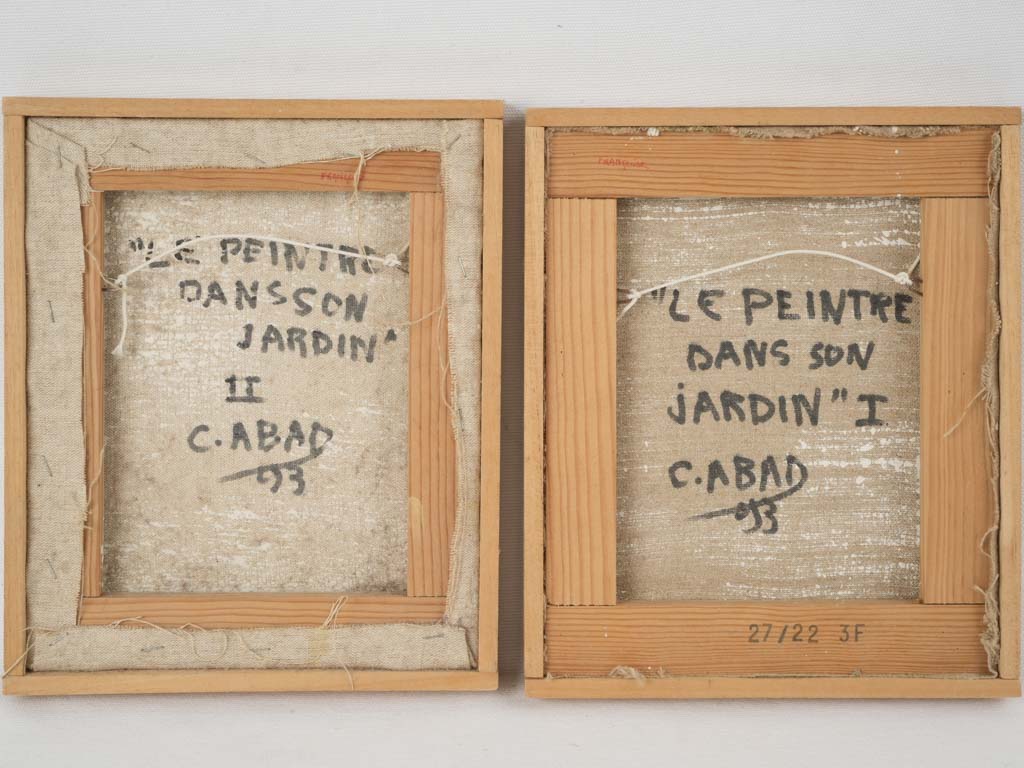 "LE PEINTRE
DANS SON
JARDIN"
II
C. ABAD
93
"LE PEINTRE
DANS SON
JARDIN" I
C. ABAD
93
27/22 3F